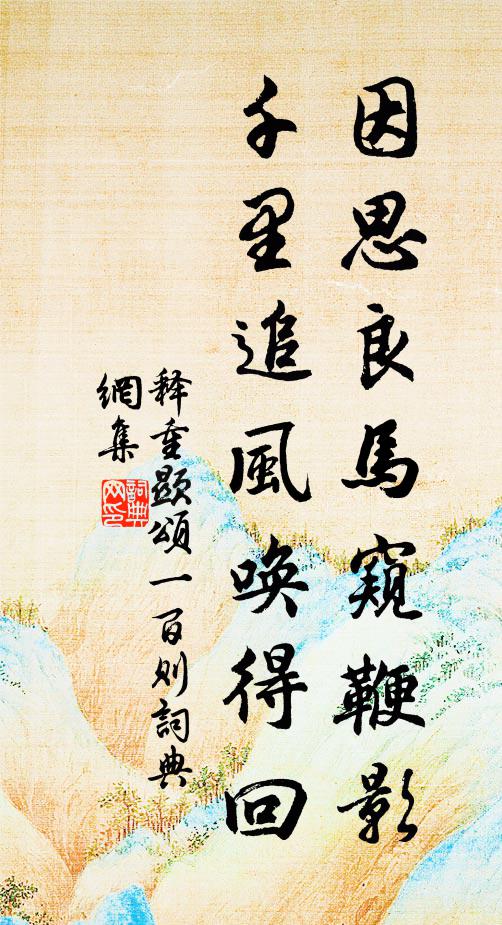 因思良馬窺鞭影
千里追風喚得回
釋重顯頌一百則詞典
網集
詞典
网印